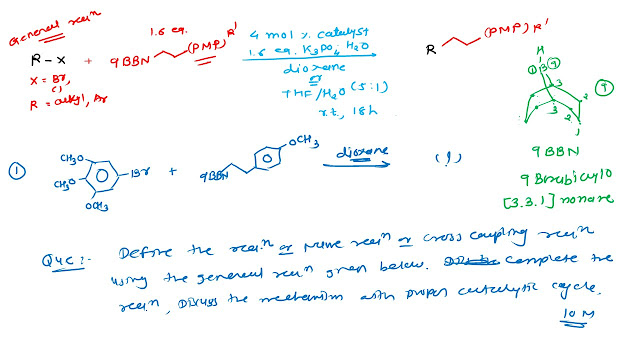 General reacⁿ
R-X + 9BBN (PMP) R'
1.6 eq.
X = Br, Cl
R = alkyl, Ar
4 mol % catalyst
1.6 eq. K3PO4 H2O
dioxane
or
THF/H2O (5:1)
r.t, 18h
R (PMP) R'
H
9BBN
9 Borabicyclo
[3.3.1] nonane
①
CH3O
CH3O
OCH3
Br + 9BBN OCH3
dioxane
(?)
Que:- Define the reacⁿ or Name reacⁿ or cross coupling reacⁿ
using the general reacⁿ given below. Complete the
reacⁿ, Discuss the mechanism with proper catalytic cycle.
10 M